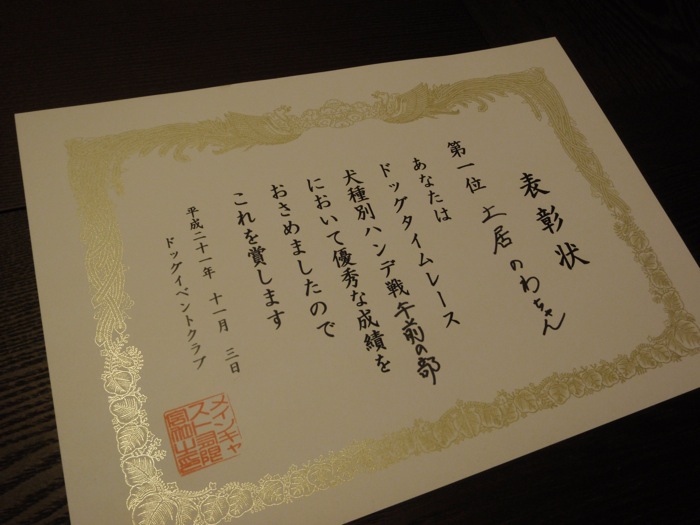 表彰状
第一位 土居のわちゃん
あなたは
ドッグタイムレース
犬種別ハンデ戦午前の部
において優秀な成績を
おさめましたので
これを賞します
平成二十一年 十一月 三日
ドッグイベントクラブ
メインキャ
スト